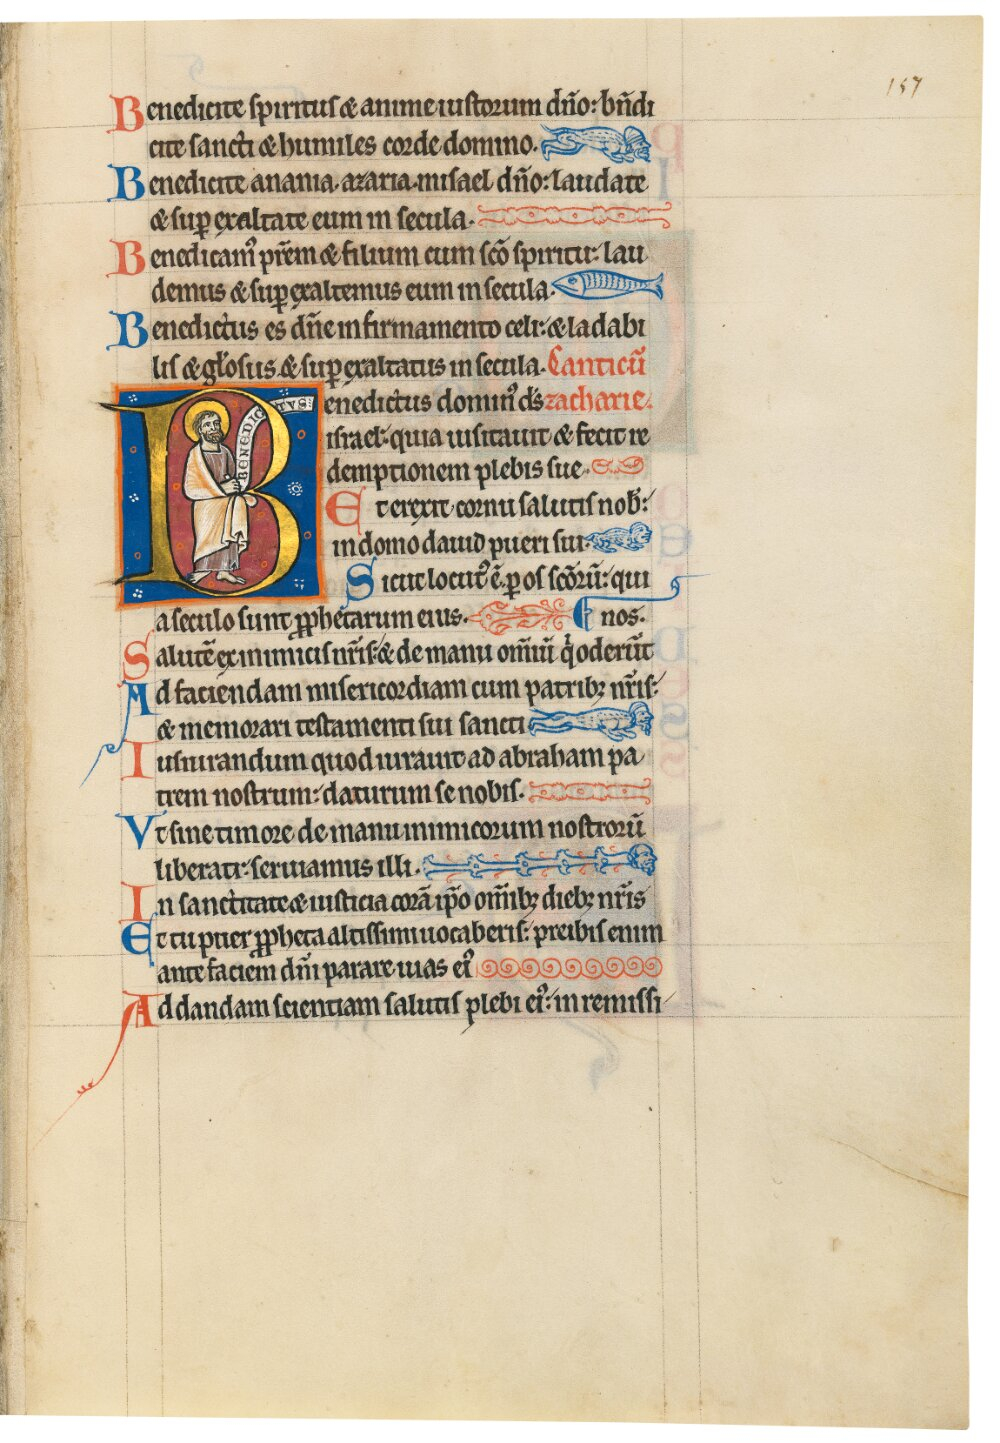 157
Benedicite spiritus & anime iustorum dn̄o: bn̄di
cite sancti & humiles corde domino.
Benedicite anania. azaria. misael dn̄o: laudate
& suꝑ exaltate eum in secula.
Benedicamꝰ pr̄em & filium cum sc̄o spiritu: lau
demus & suꝑ exaltemus eum in secula.
Benedictus es dn̄e in firmamento celi: & ladabi
lis & gl̓osus & suꝑ exaltatus in secula. Canticū
Benedictus dominꝰ ds̄ zacharie.
BENEDICTVS:
israel: quia uisitauit & fecit re
demptionem plebis sue.
Et erexit cornu salutis nob̄:
in domo dauid pueri sui.
Sicut locutꝰ ē. ꝑ os sc̄oꝝ̄: qui
a seculo sunt ꝓphetarum eius. E nos.
Salutē ex inimicis nr̄is: & de manu om̄iū q̓ oderūt
Ad faciendam misericordiam cum patribꝫ nr̄is:
& memorari testamenti sui sancti
Iusiurandum quod iurauit ad abraham pa
trem nostrum: daturum se nobis.
Vt sine timore de manu inimicorum nostrorū
liberati: seruiamus illi.
In sanctitate & iusticia corā ip̄o om̄ibꝫ diebꝫ nr̄is
Et tu puer ꝓpheta altissimi uocaberis: preibis enim
ante faciem dn̄i parare uias eiꝰ
Ad dandam scientiam salutis plebi eiꝰ: in remissi